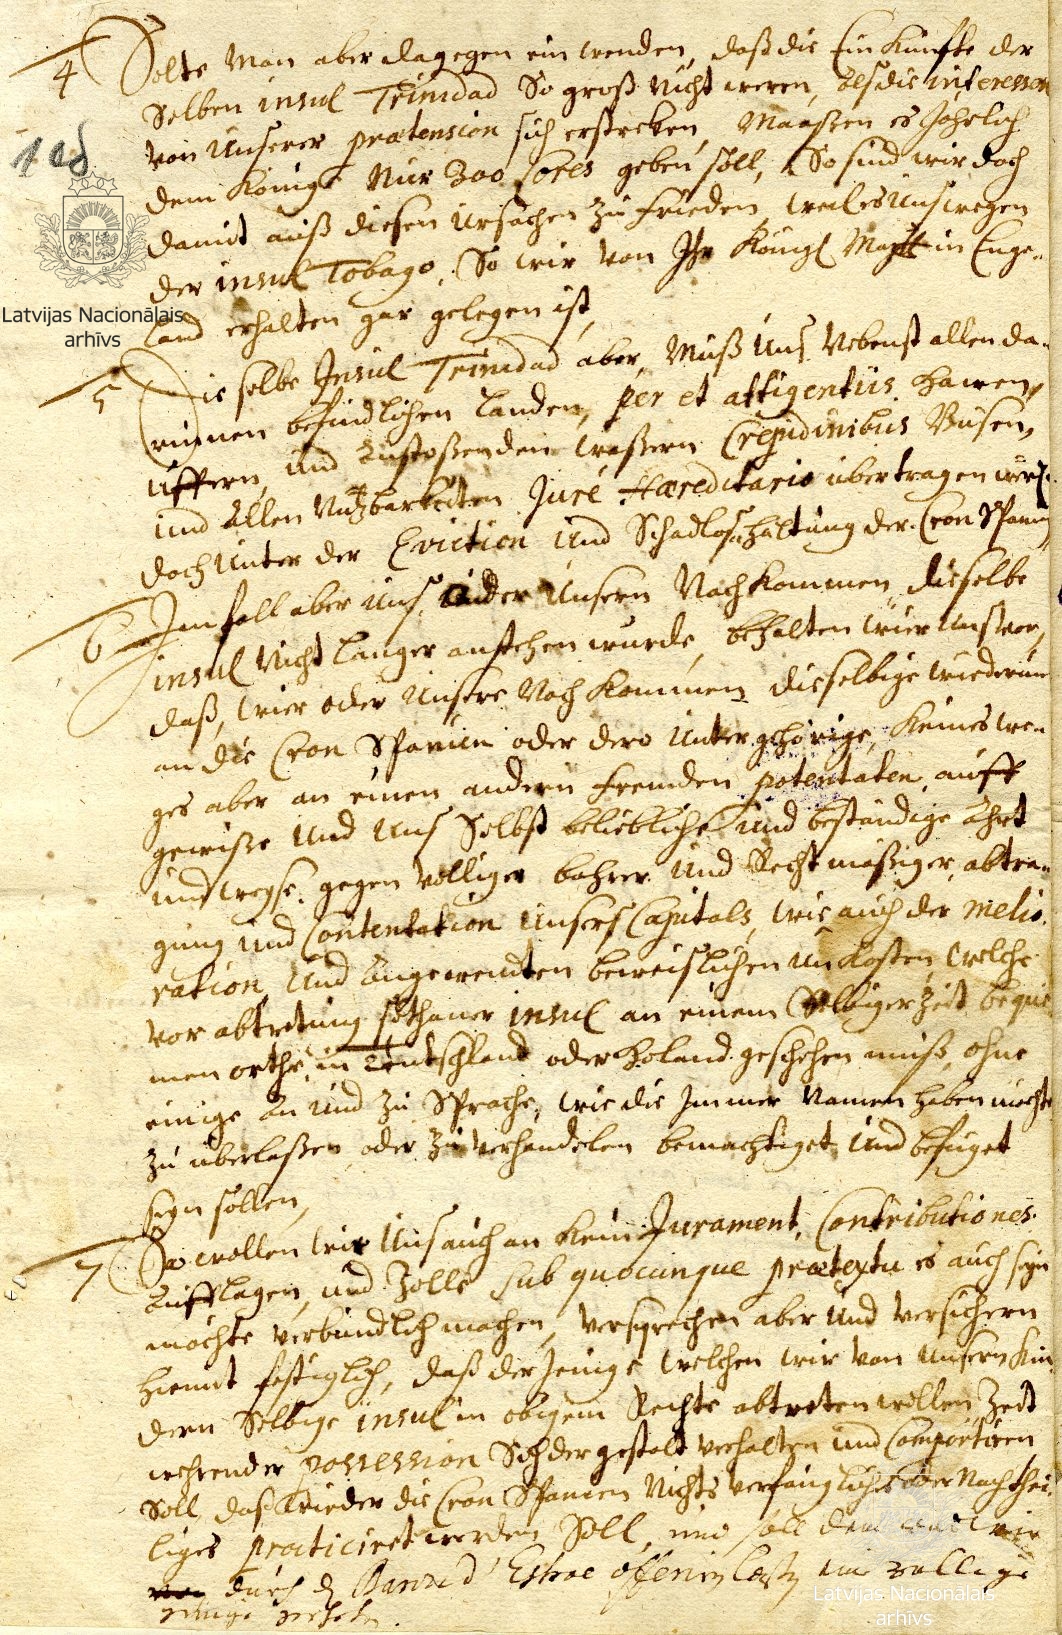 4 Solte Man aber dagegen ein wenden, daß die Einkünfte der
Selben insul Trinidad So groß Nicht weren, als die interessen
von Unserer prætension sich erstrecken, Maaßen es Jahrlich
108
dem Könige Nur 300 geben soll, So sind wir doch
damit auß diesen Ursachen zu frieden, weil es Uns wegen
der insul Tobago, So wir von Ihr Königl Maytt in Enge-
Land erhalten gar gelegen ist,
Latvijas Nacionālais
arhīvs
5 Die selbe Insul Trinidad aber, Muß Uns Nebenst allen da-
rinnen befindlichen Landen, per et attigentiis Hawen,
Uffern, und anstoßenden waßern Crepidinibus Busen,
und allen Nutzbarkeiten Jure Hæreditario ubertragen
doch Unter der Eviction Und Schadloß haltung der Cron Spanien
6 Im fall aber Uns, oder Unsern Nachkommen dieselbe
insul Nicht langer anstehen wurde, behalten wier Uns vor,
daß, wier oder Unsere Nachkommen dieselbige wiederum
an die Cron Spanien oder dero Untergehörige, Keineswe-
ges aber an einen andern fremden potentaten, auff
gewisse Und Uns Selbst beliebliche und beständige Ahrt
und weyse, gegen volliger bahrer Und Rechtmäßiger, abtra-
gung und Contentation Unsers Capitals, wie auch der melio-
ration, Und angewendten beweislichen Unkosten, welche
vor abtretung sothaner insul an einem Selbiger Zeit beque-
men orthe, in Teutschland oder Holand geschehen muß, ohne
einige An Und Zu Sprache, wie die Immer Namen haben mochte
Zu uberlaßen oder Zu verhandelen bemachtiget Und befuget
seyn sollen,
7 So wollen wir Uns auch an Kein Jurament, Contributiones
Aufflagen, und Zolle sub quocunque prætextu es auch seyn
möchte verbindlich machen, versprechen aber Und versichern
hiemit festiglich, daß der Jenige welchen wir von Unsern Kin-
dern Selbige insul in obigem Rechte abtreten wollen, Zeit
wehrender possession Sich dergestalt verhalten und Comportiren
Soll, daß wieder die Cron Spanien Nichts verfangliches oder Nachthei-
liges practiciret werden Soll, und soll
durch d
Latvijas Nacionālais
arhīvs